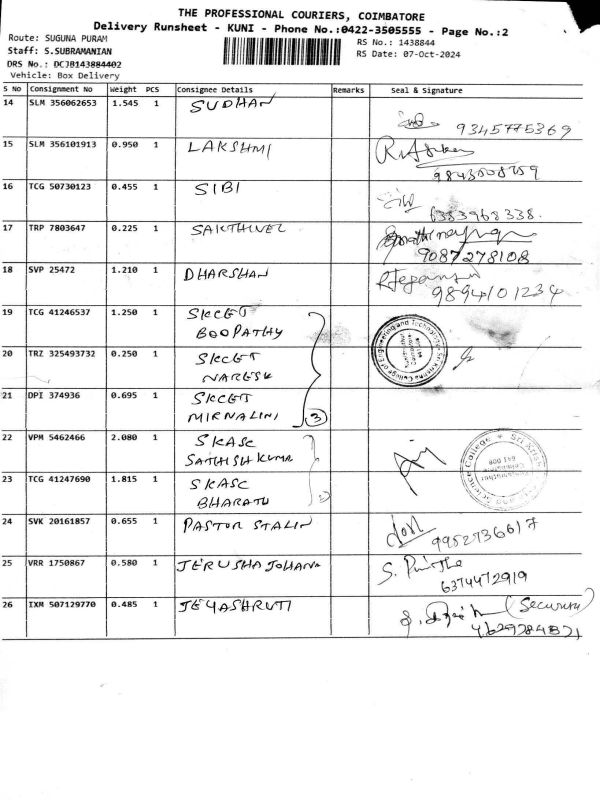 THE PROFESSIONAL COURIERS, COIMBATORE
Delivery Runsheet - KUNI - Phone No.:0422-3505555 - Page No.:2
Route: SUGUNA PURAM
RS No.: 1438844
Staff: S.SUBRAMANIAN
RS Date: 07-Oct-2024
DRS No.: DCJB143884402
Vehicle: Box Delivery
S No Consignment No Weight PCS Consignee Details Remarks Seal & Signature
14 SLM 356062653 1.545 1 SUDHAN
9345775369
15 SLM 356101913 0.950 1 LAKSHMI
16 TCG 50730123 0.455 1 SIBI
6383968338.
17 TRP 7803647 0.225 1 SAKTHIVEL
9087278108
18 SVP 25472 1.210 1 DHARSHAN
9894101234
19 TCG 41246537 1.250 1 SKCET
BOOPATHY
20 TRZ 325493732 0.250 1 SKCET
NARESH
21 DPI 374936 0.695 1 SKCET
MIRNALINI 3
22 VPM 5462466 2.080 1 SKASC
SATHISH KUMAR
23 TCG 41247690 1.815 1 SKASC
BHARATH
24 SVK 20161857 0.655 1 PASTOR STALIN
9952736617
25 VRR 1750867 0.580 1 JERUSHA JOHANA
6374472919
26 IXM 507129770 0.485 1 JEYASHRUTI
(Security)